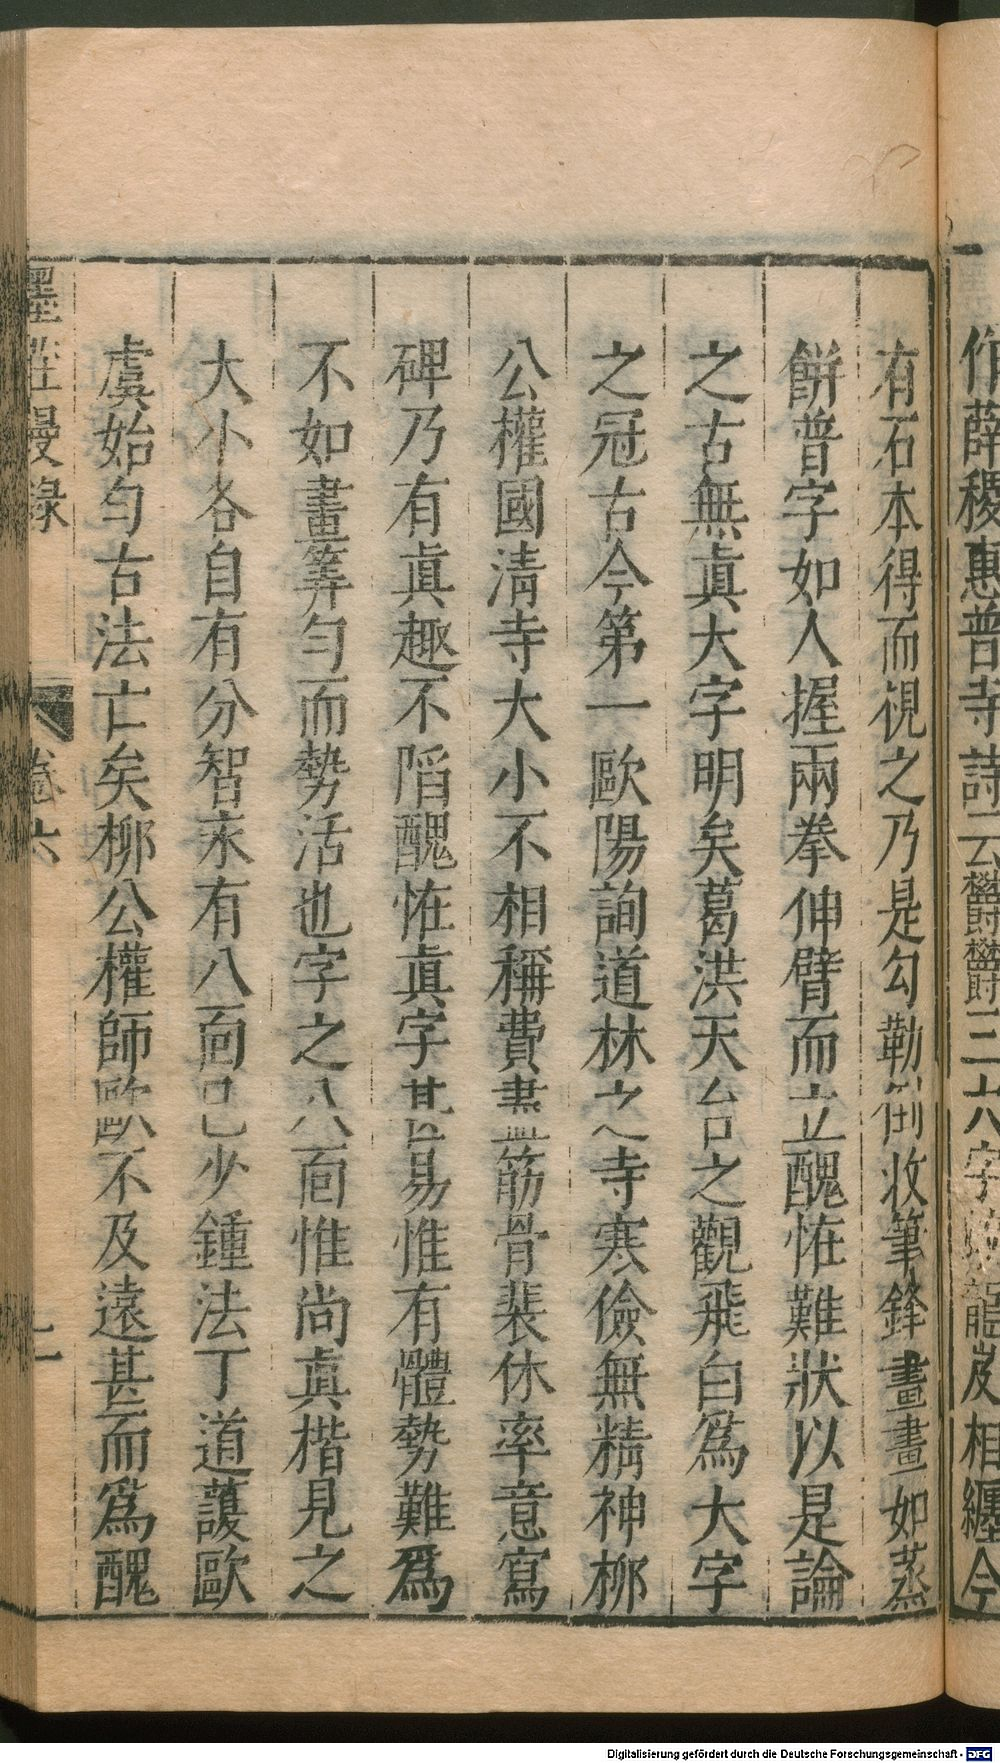 作薛稷惠普寺詩云鬱鬱三大字龍岌相纏今
有石本得而視之乃是勾勒倒收筆鋒畫畫如蒸
餅普字如人握兩拳伸臂而立醜恠難狀以是論
之古無眞大字明矣葛洪天台之觀飛白爲大字
之冠古今第一歐陽詢道林之寺寒儉無精神柳
公權國清寺大小不相稱費盡筋骨裴休率意寫
碑乃有眞趣不陷醜恠眞字甚易惟有體勢難爲
不如畫筭勻而勢活也字之八面惟尚眞楷見之
大小各自有分智永有八面已少鍾法丁道護歐
虞始勻古法亡矣柳公權師歐不及遠甚而爲醜
墨莊漫錄 卷六 十一
Digitalisierung gefördert durch die Deutsche Forschungsgemeinschaft - DFG